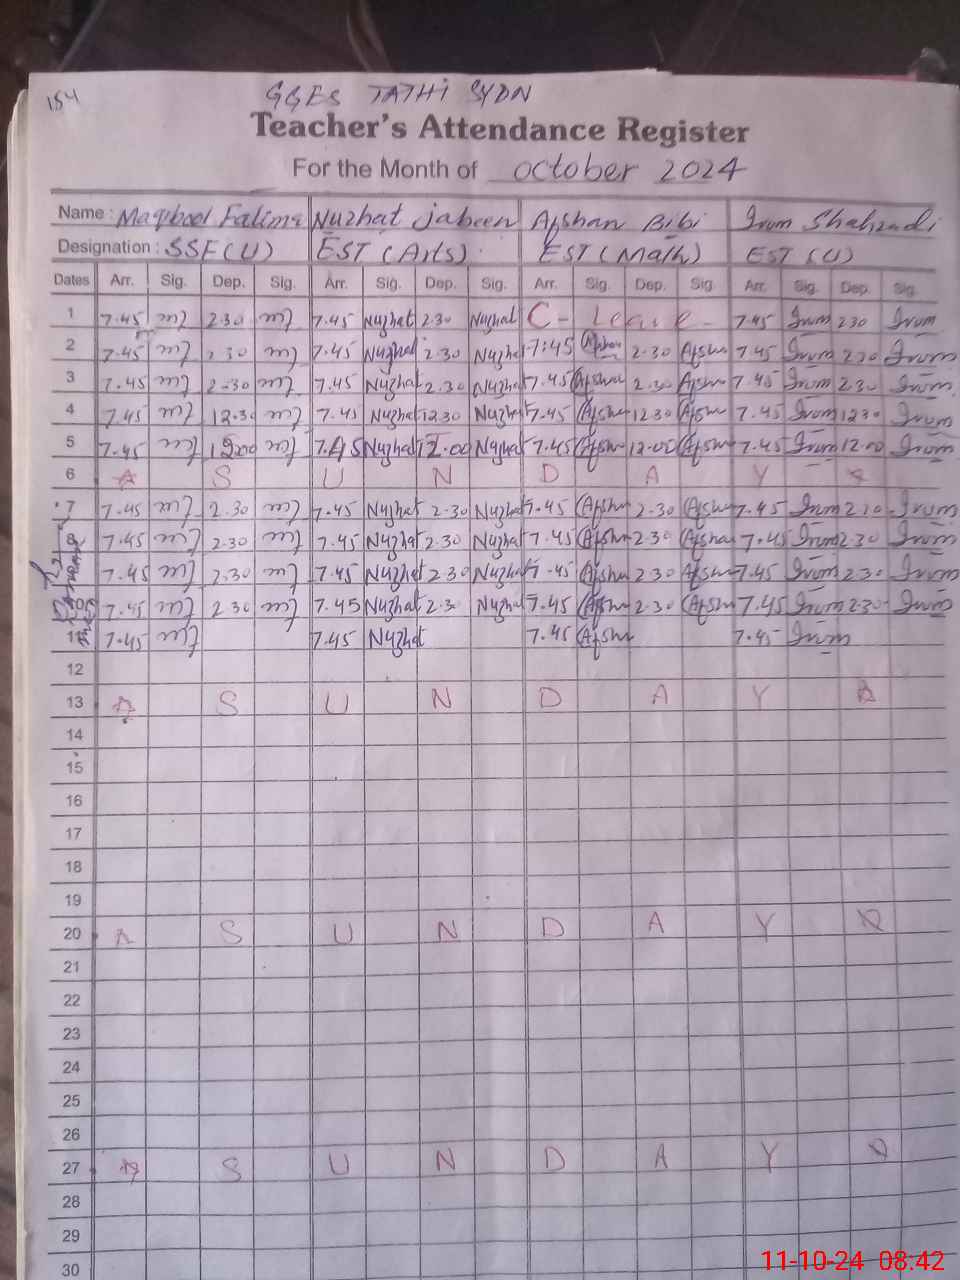 154
GGES TATHi SYDN
Teacher's Attendance Register
For the Month of October 2024
Name : Maqbool Fatima Nuzhat jabeen Afshan Bibi Irum Shahzadi
Designation : SSE(U) EST (Arts). EST (Math) EST (U)
Dates Arr. Sig. Dep. Sig. Arr. Sig. Dep. Sig. Arr. Sig. Dep. Sig. Arr. Sig. Dep. Sig.
1 7.45 2.30 7.45 Nuzhat 2.30 Nuzhat C- Leave - 7.45 Irum 2 30 Irum
2 7.45 2 30 7.45 Nuzhat 2.30 Nuzhat 7:45 Afshan 2.30 Afshan 7.45 Irum 2 30 Irum
3 7.45 2.30 7.45 Nuzhat 2.30 Nuzhat 7.45 Afshan 2.30 Afshan 7.45 Irum 2.30 Irum
4 7.45 12.30 7.45 Nuzhat 12.30 Nuzhat 7.45 Afshan 12.30 Afshan 7.45 Irum 12 30 Irum
5 7.45 12.00 7.45 Nuzhat 12.00 Nuzhat 7.45 Afshan 12.00 Afshan 7.45 Irum 12.00 Irum
6 S U N D A Y
7 7.45 2.30 7.45 Nuzhat 2.30 Nuzhat 7.45 Afshan 2.30 Afshan 7.45 Irum 2.30 Irum
8 7.45 2.30 7.45 Nuzhat 2.30 Nuzhat 7.45 Afshan 2.30 Afshan 7.45 Irum 2.30 Irum
7.45 2.30 7.45 Nuzhat 2.30 Nuzhat 7.45 Afshan 2 30 Afshan 7.45 Irum 2.30 Irum
10 7.45 2.30 7.45 Nuzhat 2.30 Nuzhat 7.45 Afshan 2.30 Afshan 7.45 Irum 2.30 Irum
11 7.45 7.45 Nuzhat 7.45 Afshan 7.45 Irum
12
13 S U N D A Y
14
15
16
17
18
19
20 S U N D A Y
21
22
23
24
25
26
27 S U N D A Y
28
29
30
11-10-24 08:42